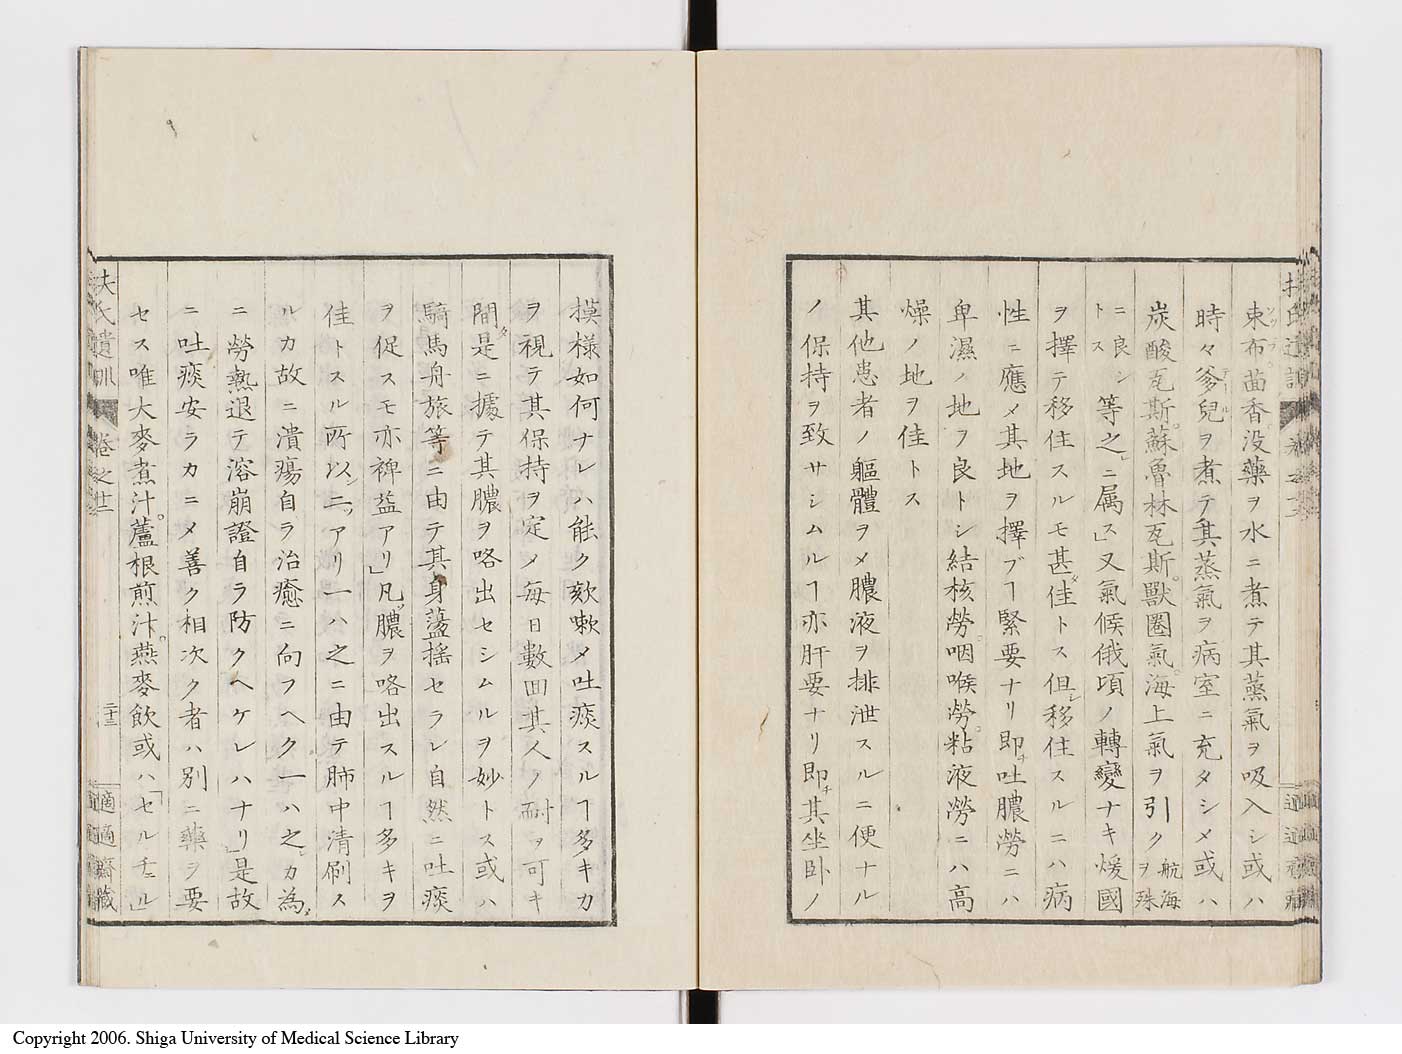 束布茴香没藥ヲ水ニ煮テ其蒸氣ヲ吸入シ或ハ
時々爹兒ヲ煮テ其蒸氣ヲ病室ニ充タシメ或ハ
炭酸瓦斯蘇魯林瓦斯獸圈氣海上氣ヲ引ク航海ヲ殊
ニ良シトス等之ニ属ス」又氣候俄頃ノ轉變ナキ煖國
ヲ擇テ移住スルモ甚佳トス但移住スルニハ病
性ニ應メ其地ヲ擇ブヿ緊要ナリ即吐膿勞ニハ
卑濕ノ地ヲ良トシ結核勞咽喉勞粘液勞ニハ高
燥ノ地ヲ佳トス
其他患者ノ軀體ヲメ膿液ヲ排泄スルニ便ナル
ノ保持ヲ致サシムルヿ亦肝要ナリ即其坐卧ノ
摸様如何ナレハ能ク欬嗽メ吐痰スルヿ多キカ
ヲ視テ其保持ヲ定メ毎日數回其人ノ耐ヲ可キ
間是ニ據テ其膿ヲ咯出セシムルヲ妙トス或ハ
騎馬舟旅等ニ由テ其身蕩揺セラレ自然ニ吐痰
ヲ促スモ亦裨益アリ」凡膿ヲ咯出スルヿ多キヲ
佳トスル所以ニアリ一ハ之ニ由テ肺中清刷ス
ルカ故ニ潰瘍自ラ治癒ニ向フヘク一ハ之カ為
ニ勞熱退テ溶崩證自ラ防クヘケレハナリ」是故
ニ吐痰安ラカニメ善ク相次ク者ハ別ニ藥ヲ要
セス唯大麥煮汁蘆根煎汁燕麥飲或ハ「セルチェル」
扶氏遺訓 卷之廿二 二十三 適適齋藏